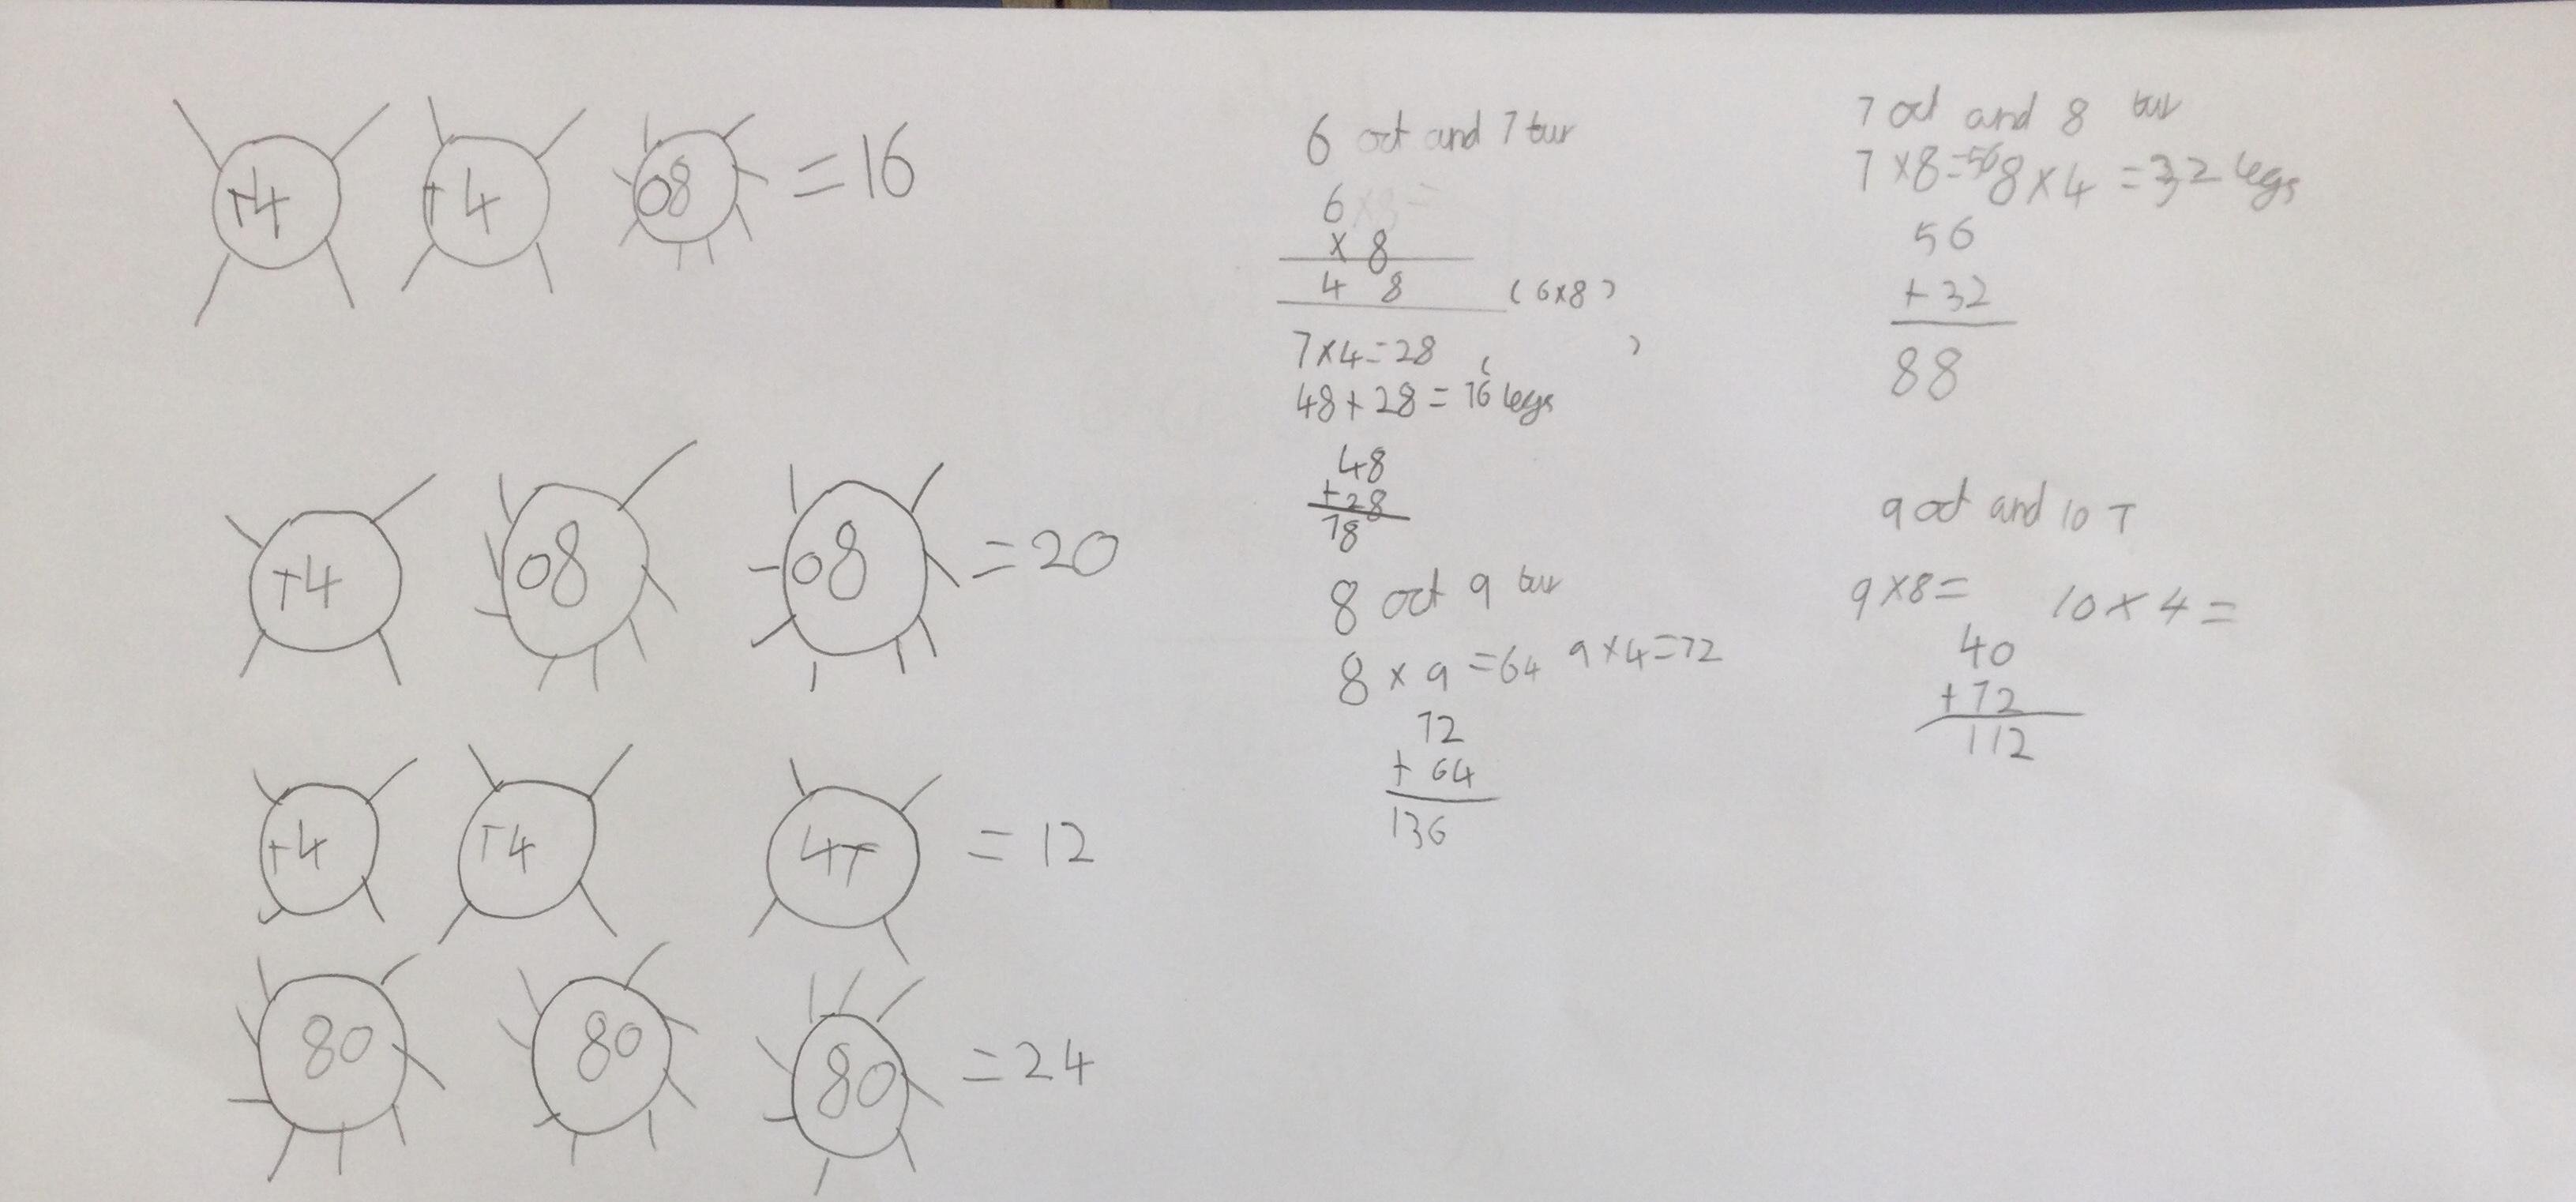 T4 T4 O8 = 16
T4 O8 O8 = 20
T4 T4 4T = 12
8O 8O 8O = 24
6 oct and 7 tur
6 x8=
x 8
4 8 (6x8)
7x4=28 ( )
48+28= 76 legs
48
+28
78
8 oct 9 tur
8 x 9 =64 9x4=72
72
+ 64
136
7 oct and 8 tur
7x8=56 8x4 =32 legs
56
+ 32
88
9 oct and 10 T
9x8= 10x4=
40
+72
112